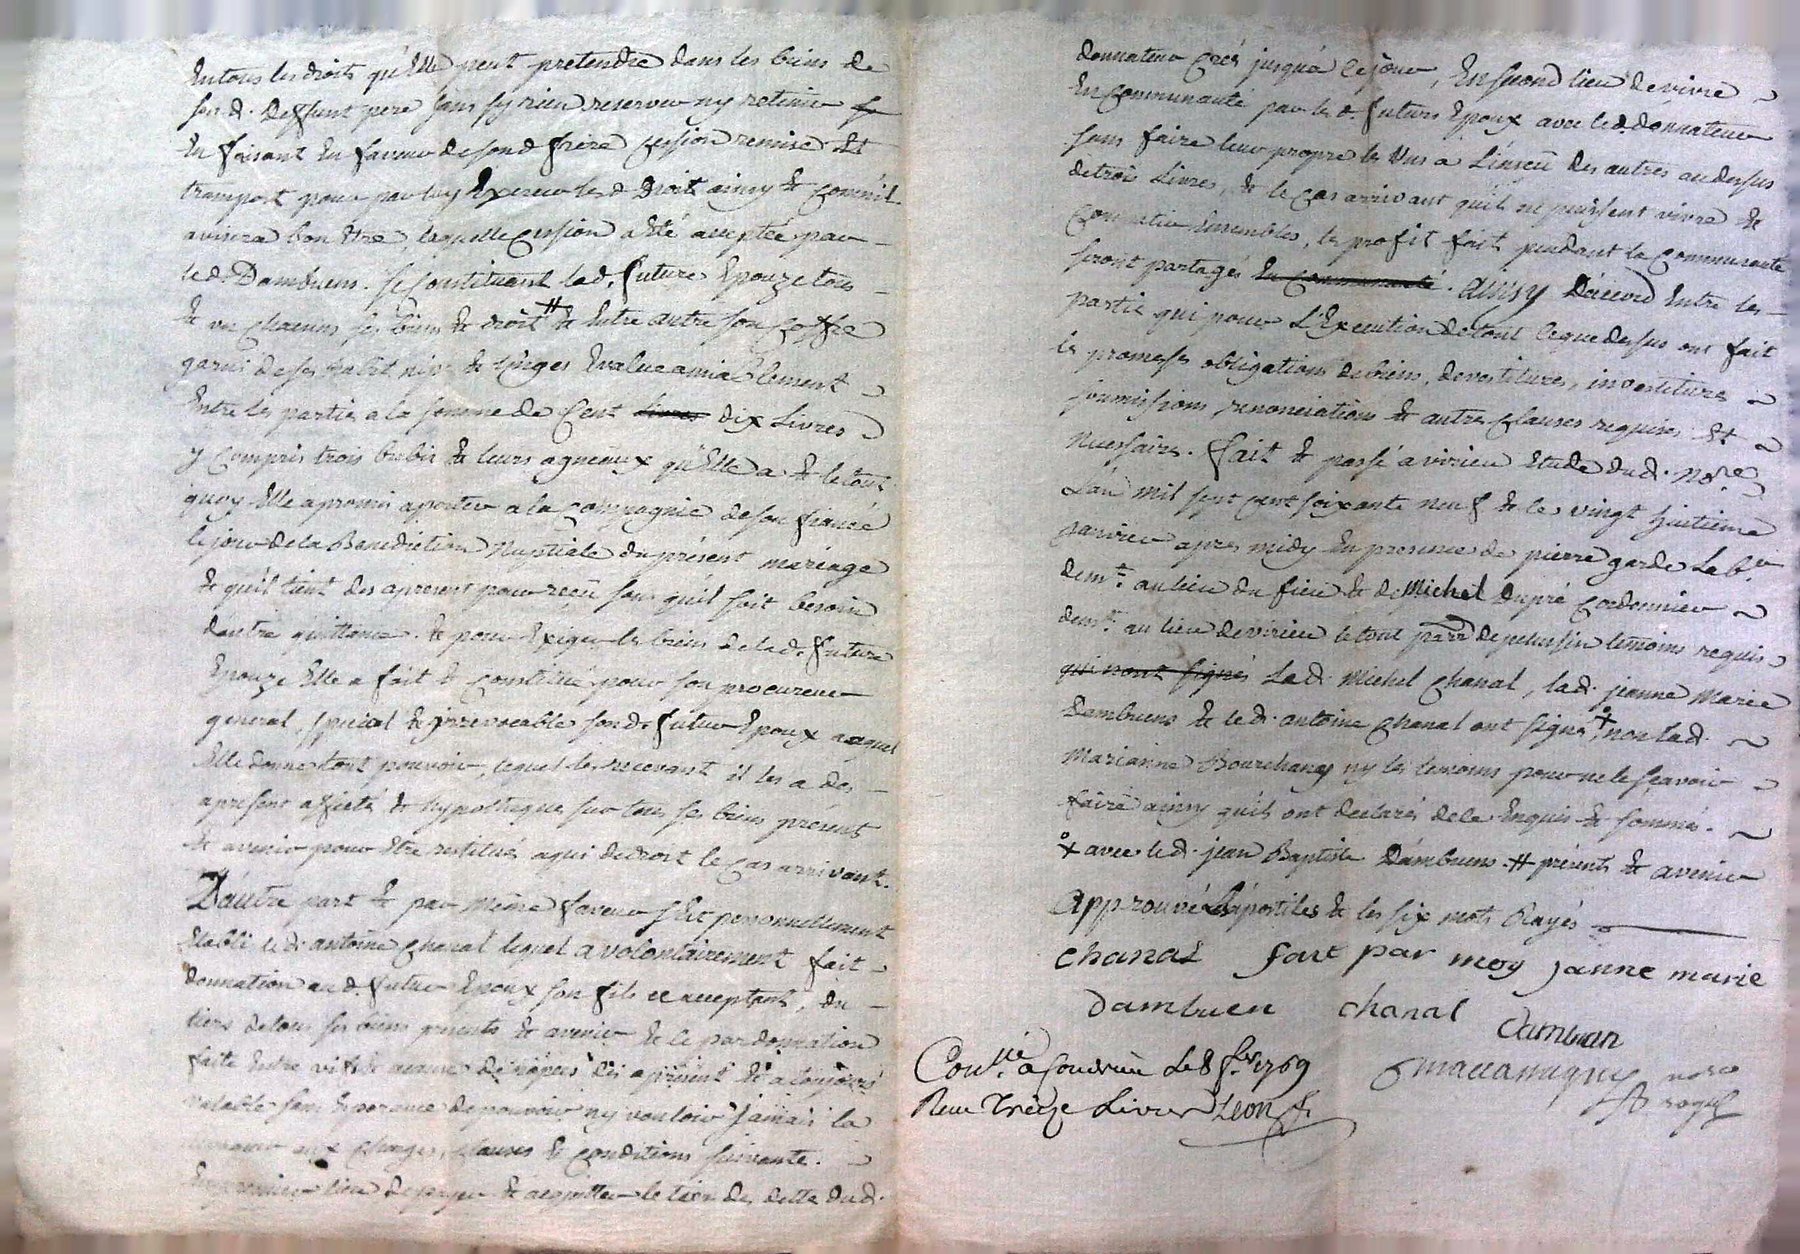 En tous les droits qu'Elle peut pretendre dans les biens de
son d. deffunt pere sans sy rien reserver ny retenir
En faisant En faveur de son d frere cession remise Et
transport pour par luy Exercer les d Droit ainsy & comme il
avisera bon Etre, laquelle cession a Eté acceptée par
le d. Dambuens. se Constituant lad. future Epouze tous
& un chacuns ses biens & droit # & Entre autre son Coffre
garni de ses habit nipe & linges Evalue amiablement
Entre les partie a la somme de Cent livres dix Livres
y Compris trois brebis & leurs agneaux qu'Elle a & le tout
quoy Elle a promis aporter a la compagnie de son fiancé
le jour de la Benediction Nuptiale du présent mariage
& qu'il tient des apresent pour reçu sans qu'il soit besoin
d'autre quittance. & pour Exiger les biens de lad. future
Epouze Elle a fait & constitué pour son procureur
general, special & irrevocable son d. futur Epoux auquel
Elle donne tout pouvoir, lequel les recevant il les a des
apresent assieté & hypothequé sur tous ses biens present
& avenir pour Etre restitués a qui de droit le cas arrivant.
D'autre part & par même faveur s'Est personnellement
Etabli le d. antoine Chanal lequel a volontairement fait
donnation au d. futur Epoux son fils ce acceptant, du
tiers de tous ses biens presents & avenir & ce par donnation
faite Entre vifs & a cause de nopces dès apresent & a toujours
valable sans Esperance de pouvoir ny vouloir jamais la
revoquer aux charges, clauses & conditions suivante.
En premier lieu de payer & acquitter le tiers des dette du d.
donnateur Créé jusqu'a ce jour, En second lieu de vivre
En Communauté par les d. futurs Epoux avec le d. donnateur
sans faire leur propre les Uns a L'inscu des autres au dessus
de trois Livres, & le cas arrivant qu'ils ne puissent vivre &
Compatir Ensembles, les profit fait pendant la communauté
seront partagés En Communauté. Ainsy D'accord Entre les
partie qui pour L'Execution de tout ce que dessus ont fait
les promesses obligations de biens, devestitures, investitures
soumissions, renonciations & autre Clauses requises &
necessaire. fait & passé a virieu Etude du d. No.re
L'an mil sept cent soixante neuf & le vingt huitieme
janvier apres midy En presence de pierre garde Lab.r
dem.t au lieu du fieu & de Michel Dupré Cordonnier
dem.t au lieu de virieu le tout parr. de pelussin temoins requis
qui n'ont signés Le d. Michel Chanal, lad. jeanne Marie
Dambuens & le d. antoine Chanal ont signé X non lad.
Marianne Bourchany ny les temoins pour ne le sçavoir
faire ainsy qu'ils ont declarés de ce Enquis & sommés.
X avec le d. jean Baptiste Dambuens. # présents & avenir
Approuvé Les apostiles & les six mots Rayés
chanal fait par moy janne marie
dambuen chanal
dambuen
Con.lé a Condrieu Le 8 f.er 1769
Reçu Treize Livres Leon